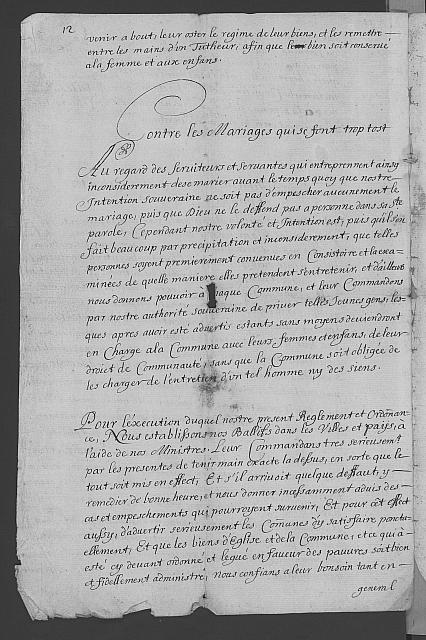 12
venir a bout, leur oster le regime de leur biens, et les remettre
entre les mains d'un Tutheur, afin que le bien soit conserve
a la femme et aux enfans.
Contre les Mariages qui se font trop tost
Au regard des Serviteurs et servantes qui entreprennent ainsy
inconsiderement de se marier avant le temps quoy que nostre
Intention souveraine ne soit pas d'empescher aucunement le
mariage, puis que Dieu ne le deffend pas a personne dans sa Ste
parole, Cependant nostre volonté et Intention est, puis qu'il s'en
fait beaucoup par precipitation et inconsiderement, que telles
personnes soyent premierement convenues en Consistoire et la exa-
minées de quelle maniere elles pretendent s'entretenir, et d'ailleurs
nous donnons pouvoir à chaque Commune, et leur Commandons
par nostre authorité souveraine de priver telles Jeunes gens, les-
ques apres avoir esté advertis estants sans moyens deviendront
en Charge a la Commune avec leurs femmes et enfans, de leur
droict de Communauté, sans que la Commune soit obligée de
les charger de l'entretien d'un tel homme ny des siens.
Pour l'execution duquel nostre present Reglement et Ordonan-
ce, Nous establissons nos Ballifs dans les Villes et païs, à
l'aide de nos Ministres. Leur Commandans tres serieusemt
par les presentes de tenir main exacte la dessus, en sorte que le
tout soit mis en effect, Et s'il arrivoit quelque deffaut, y
remedier de bonne heure, et nous donner incessamment advis des
cas et empeschements qui pourroyent survenir, Et pour cest effect
aussy, d'advertir serieusement les Comunes d'y satisfaire ponctu-
ellement, Et que les biens d'Eglise et de la Commune, et ce qui a
esté cy devant ordonné et legué en faveur des pauvres soit bien
et fidellement administré, Nous confians a leur bon soin tant en
general